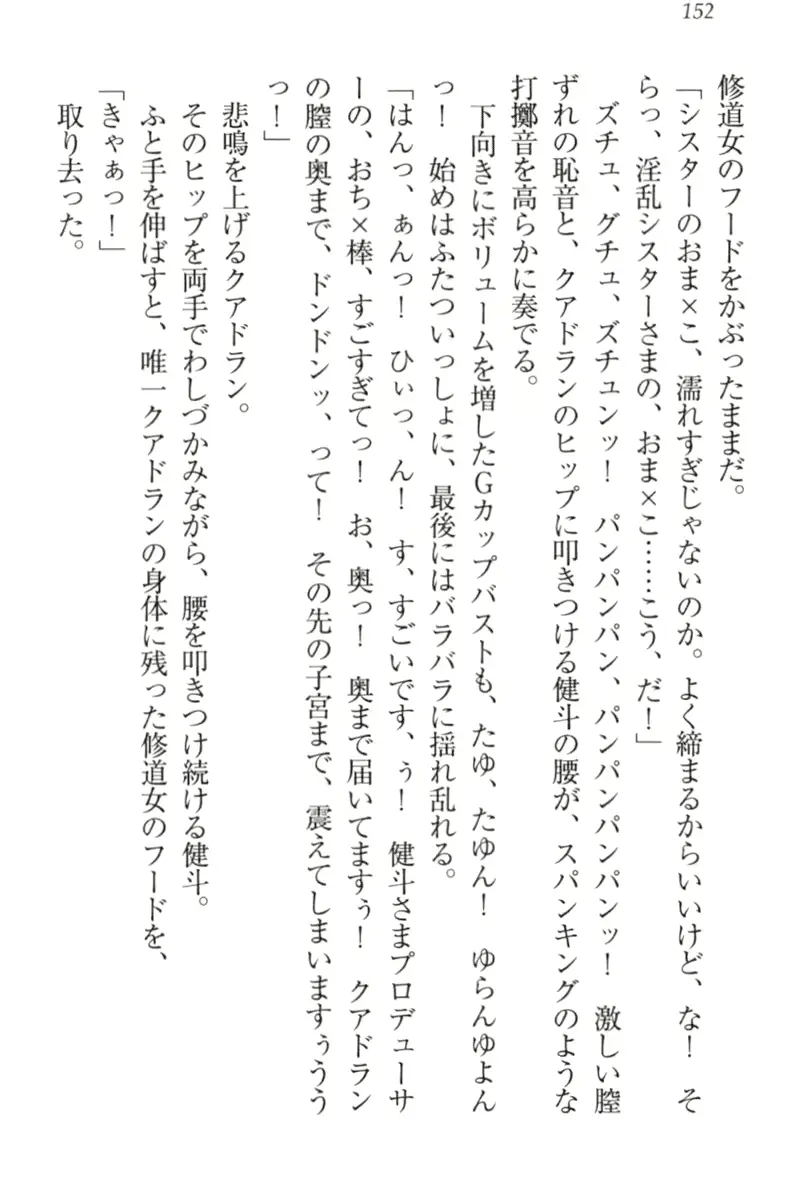 152
修道女のフードをかぶったままだ。
「シスターのおま×こ、濡れすぎじゃないのか。よく締まるからいいけど、な！　そ
らっ、淫乱シスターさまの、おま×こ……こう、だ！」
　ズチュ、グチュ、ズチュンッ！　パンパンパン、パンパンパンパンッ！　激しい膣
ずれの恥音と、クアドランのヒップに叩きつける健斗の腰が、スパンキングのような
打擲音を高らかに奏でる。
　下向きにボリュームを増したGカップバストも、たゆ、たゆん！　ゆらんゆよん
っ！　始めはふたついっしょに、最後にはバラバラに揺れ乱れる。
「はんっ、ぁんっ！　ひぃっ、ん！　す、すごいです、ぅ！　健斗さまプロデューサ
ーの、おち×棒、すごすぎてっ！　お、奥っ！　奥まで届いてますぅ！　クアドラン
の膣の奥まで、ドンドンッ、って！　その先の子宮まで、震えてしまいますぅうう
っ！」
　悲鳴を上げるクアドラン。
　そのヒップを両手でわしづかみながら、腰を叩きつけ続ける健斗。
　ふと手を伸ばすと、唯一クアドランの身体に残った修道女のフードを、
取り去った。
「きゃぁっ！」